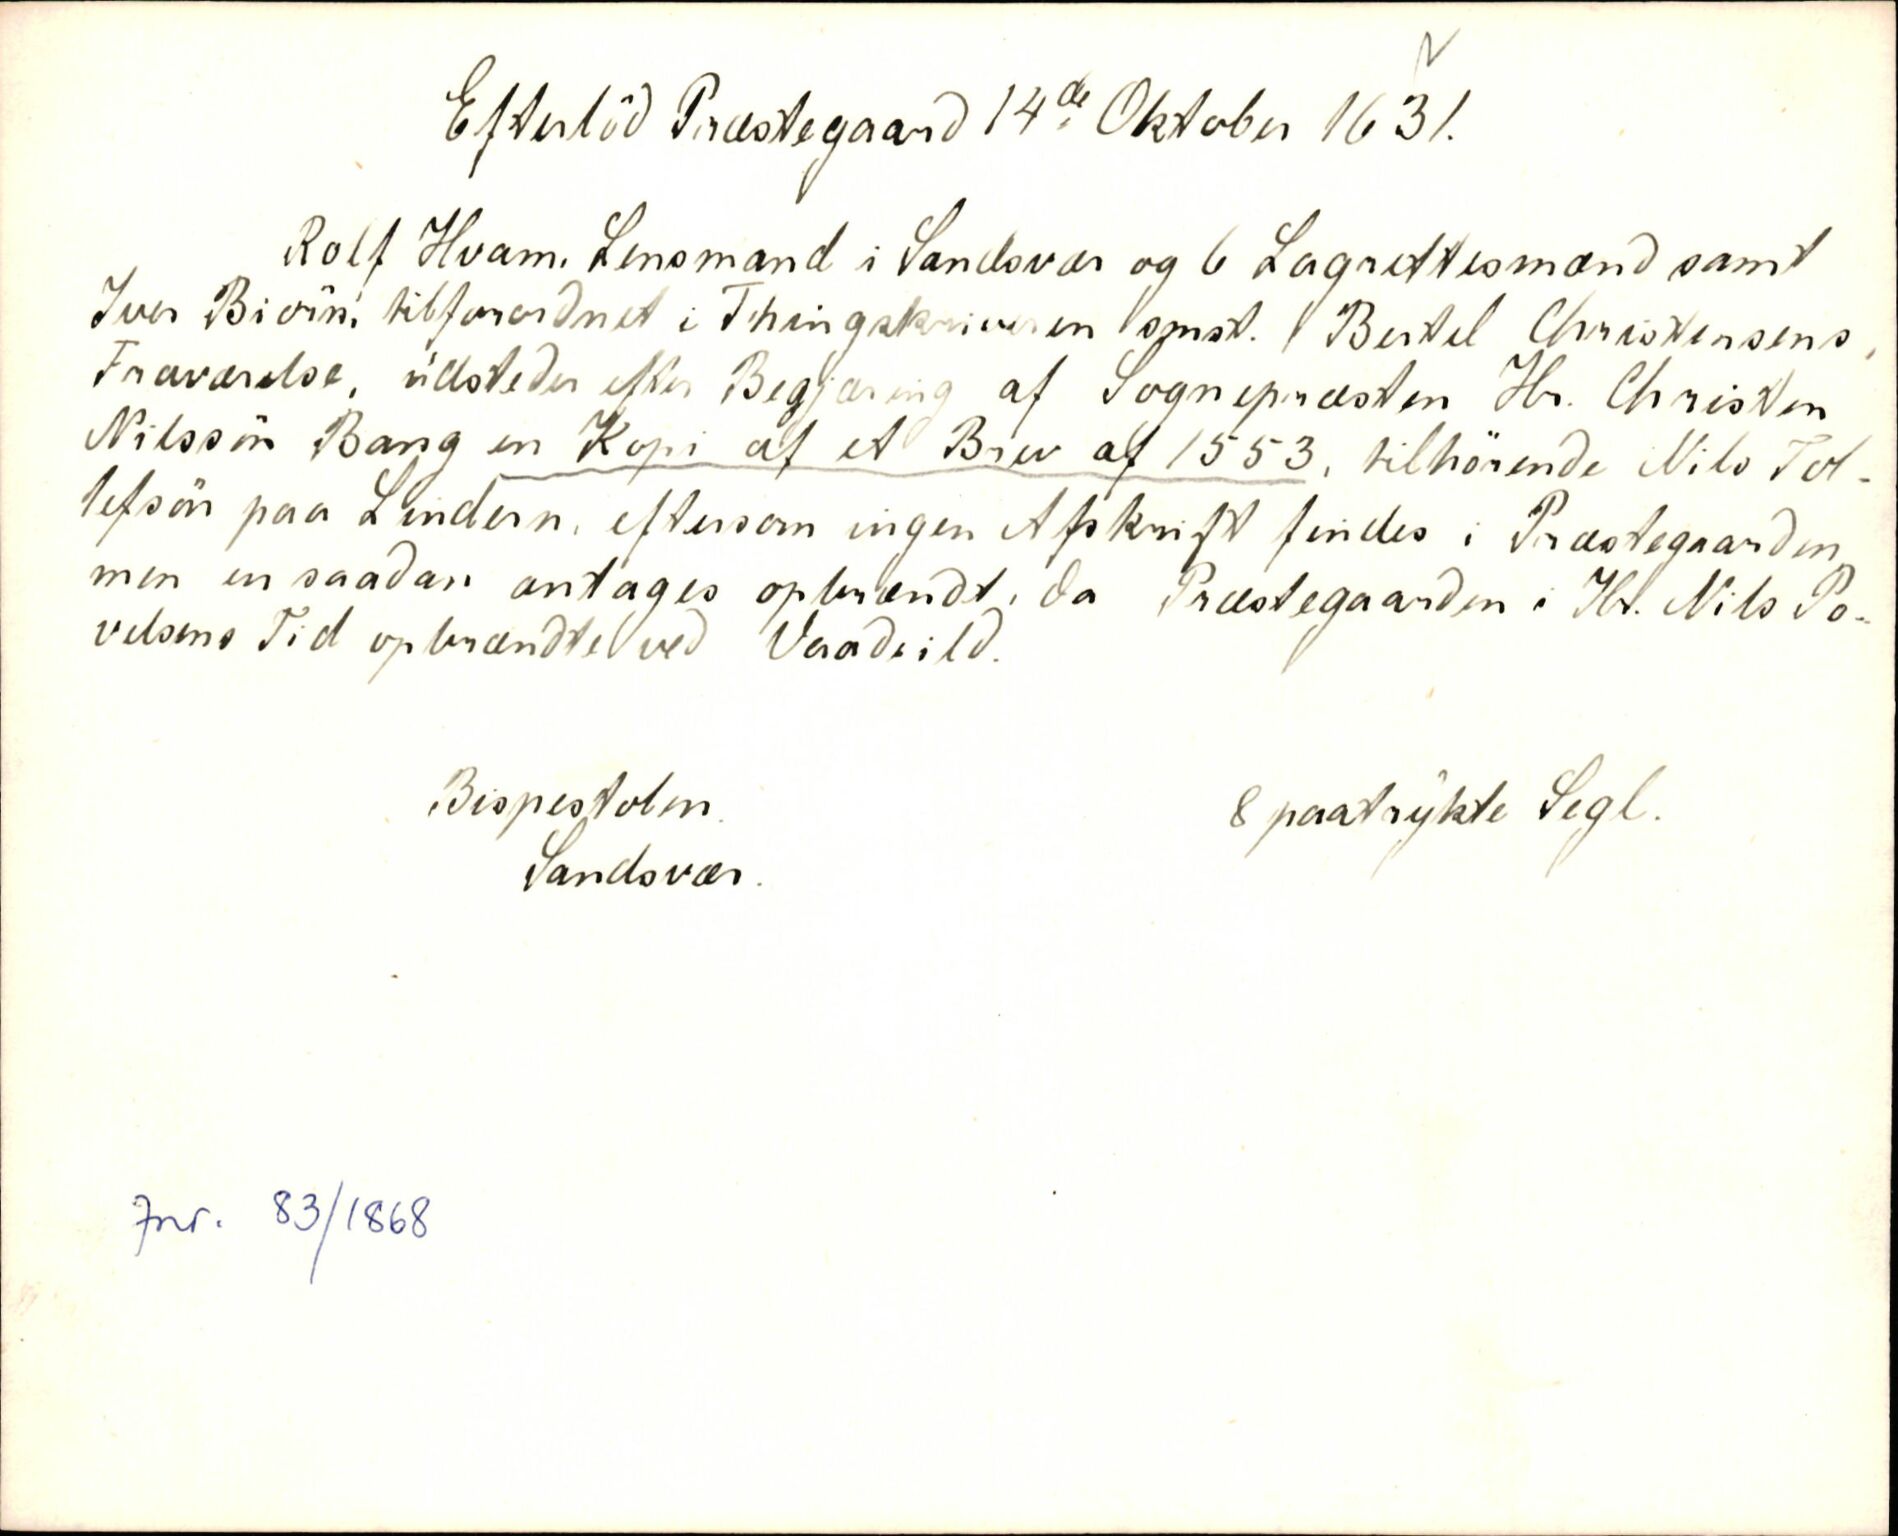 Efterlöd Præstegaard 14de Oktober 1631.
Rolf Hvam, Lensmand i Sandsvær og 6 Lagrettesmænd samt
Iver Biörn, tilforordnet i Thingskriveren smst. Bertel Christensens
Fraværelse, ŭdsteder efter Begjæring af Sognepræsten Hr. Christen
Nilssön Bang en Kopi af et Brev af 1553, tilhörende Nils Tol-
lefsön paa Lindern, eftersom ingen Afskrift findes i Præstegaarden,
men en saadan antages opbrændt, da Præstegaarden i Hr. Nils Po-
velsens Tid opbrændte ved Vaadeild.
Bispestolen.
Sandsvær.
8 paatrykte Segl.
Jnr. 83/1868